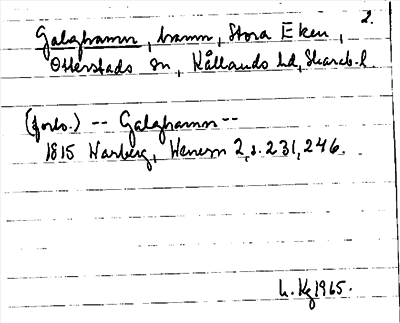 2.
Galghamn, hamn, Stora Eken,
Otterstads sn, Kållands hd, Skarab. l.
(forts.) -- Galghamn --
1815 Warberg, Wenern 2, s. 231, 246.
L. Kg 1965.